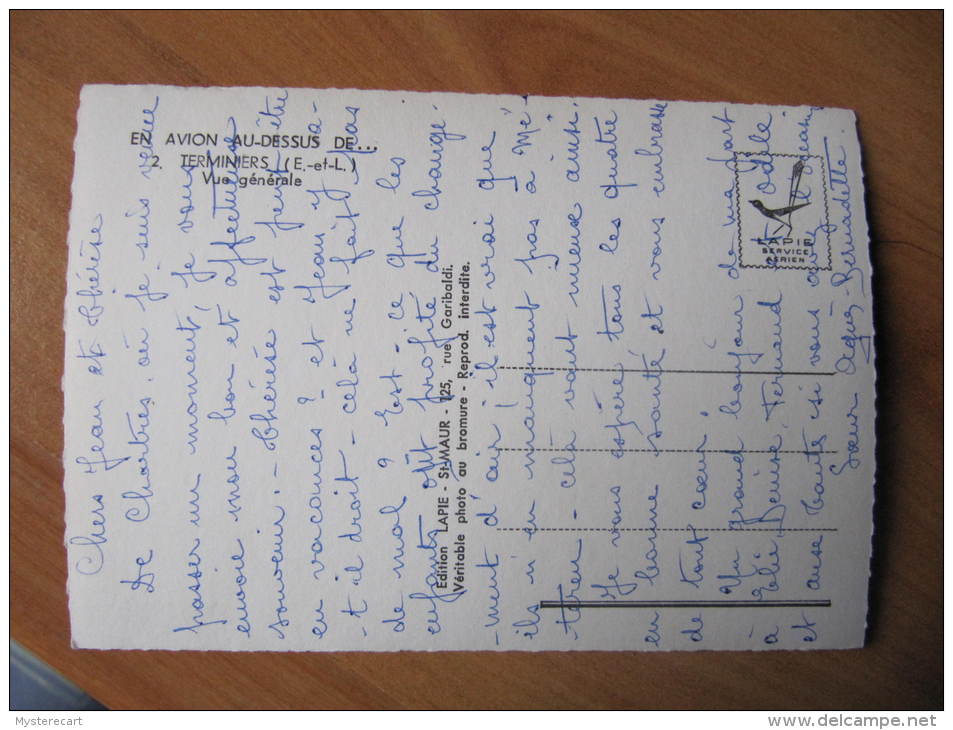 EN AVION AU-DESSUS DE...
2. TERMINIERS (E.-et-L.)
Vue générale
Edition LAPIE - St-MAUR - 125, rue Garibaldi.
Véritable photo au bromure - Reprod. interdite.
LAPIE
SERVICE
AERIEN
Chers Jean et Thérèse
De Chartres, où je suis venue
passer un moment, je vous
envoie mon bon et affectueux
souvenir. - Thérèse est peut être
en vacances ? et Jean y a-
-t-il droit - celà ne fait pas
de mal ? Est-ce que les
enfants ont profité du change-
-ment d'air ! il est vrai que
ils n'en manquent pas à Mé-
- celà vaut mieux ainsi.
Je vous espère tous les quatre
en bonne santé et vous embrasse
de tout coeur.
Un grand bonjour de ma part
à Denise, Fernand et Odile
et aussi Tante si vous avez
Soeur Agnès-Bernadette.
Mysterecart
www.delcampe.net